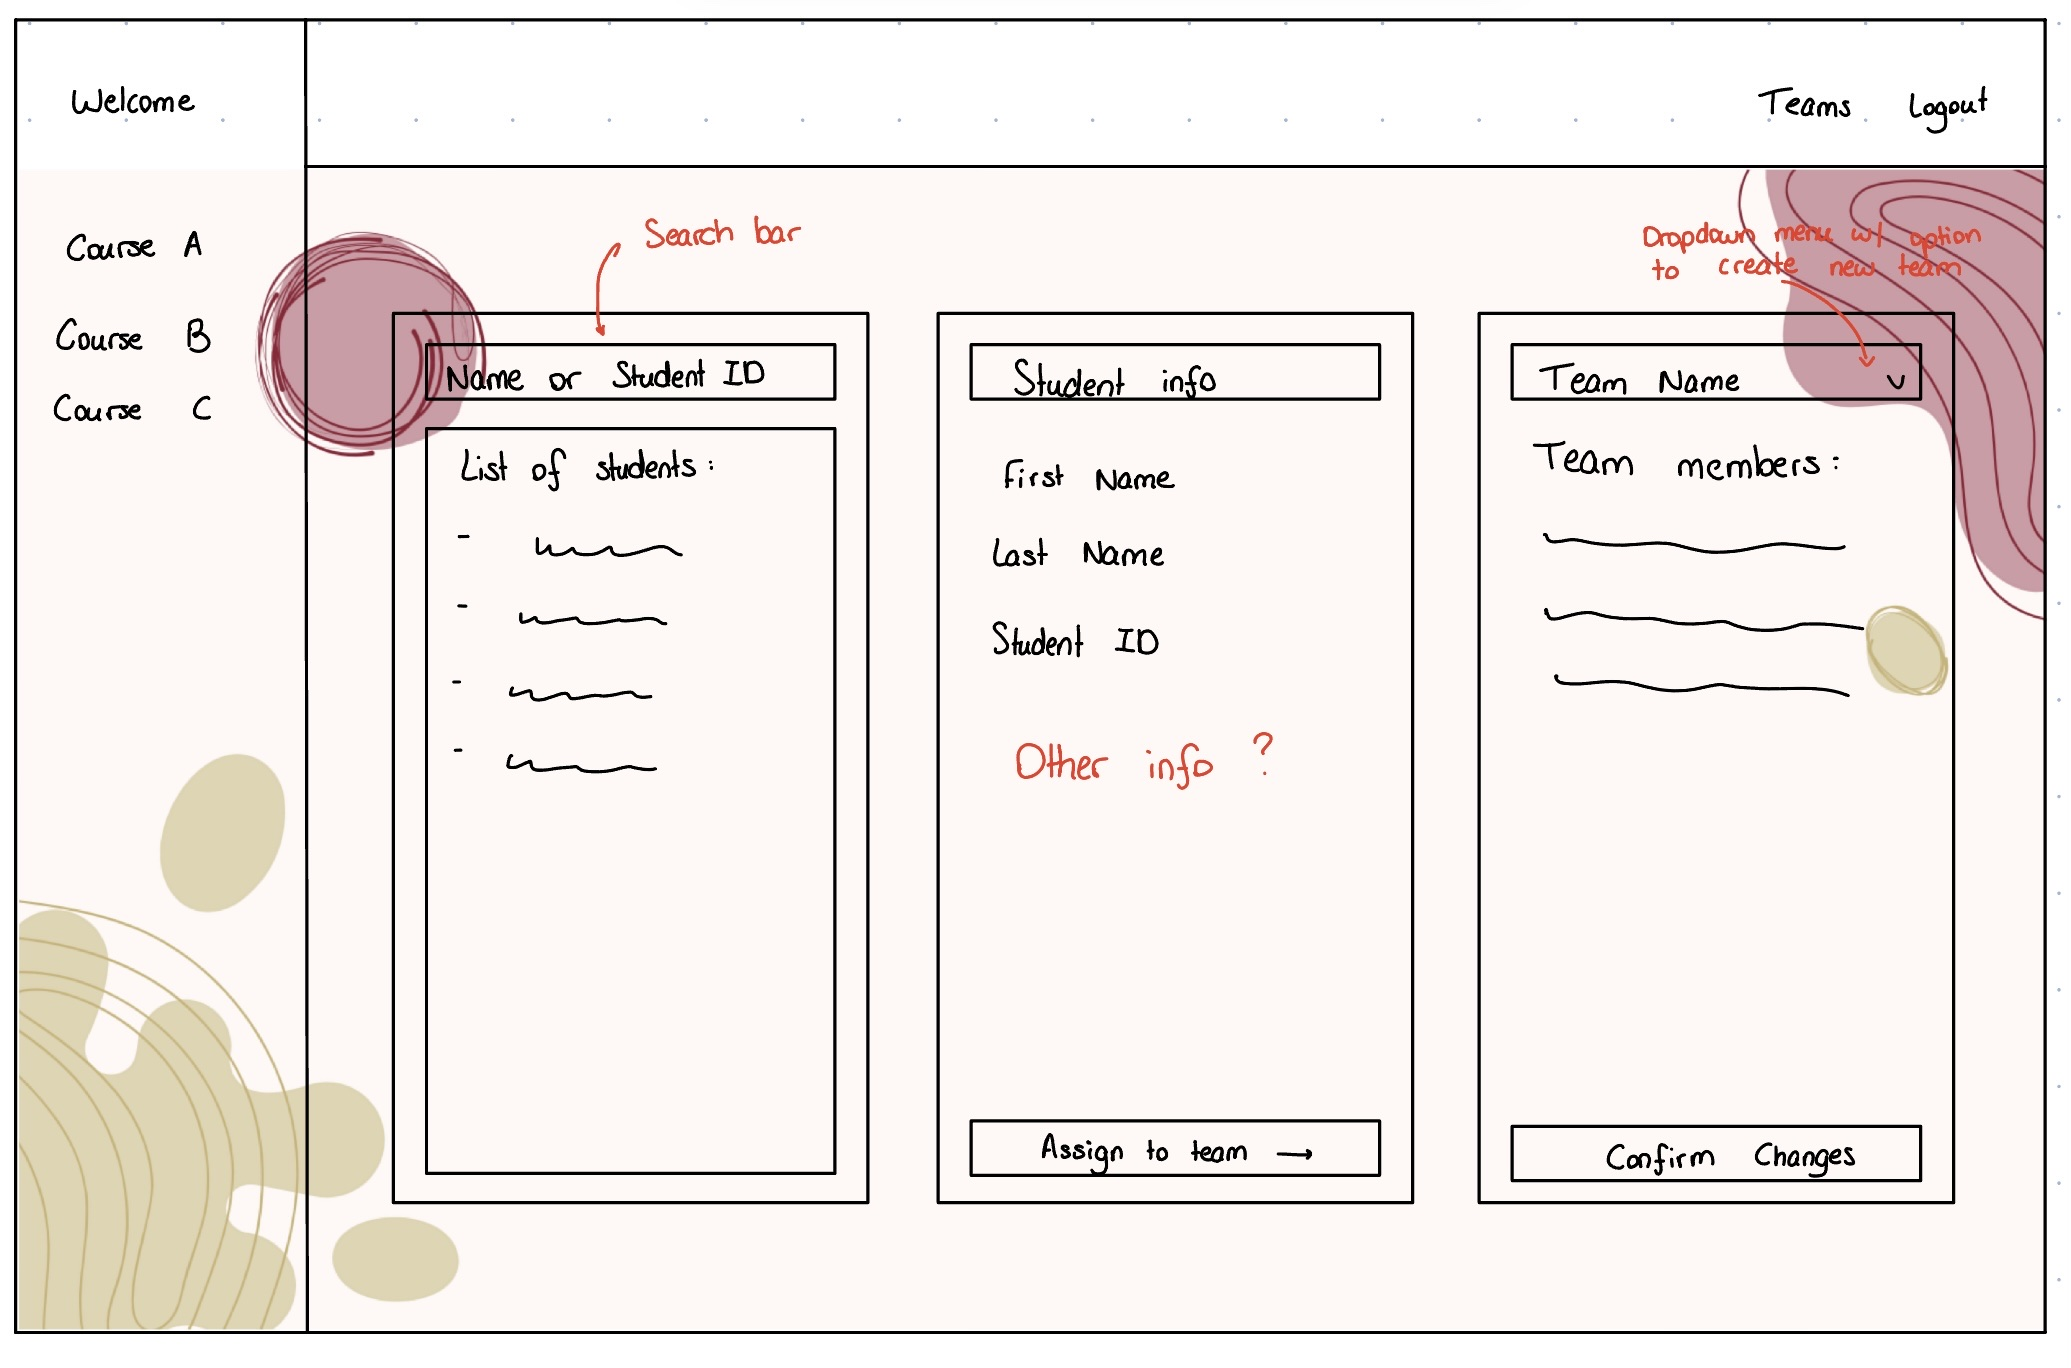 Welcome
Teams Logout
Course A
Course B
Course C
Search bar
Name or Student ID
List of students:
Student info
First Name
Last Name
Student ID
Other info ?
Assign to team →
Dropdown menu w/ option
to create new team
Team Name v
Team members:
Confirm Changes